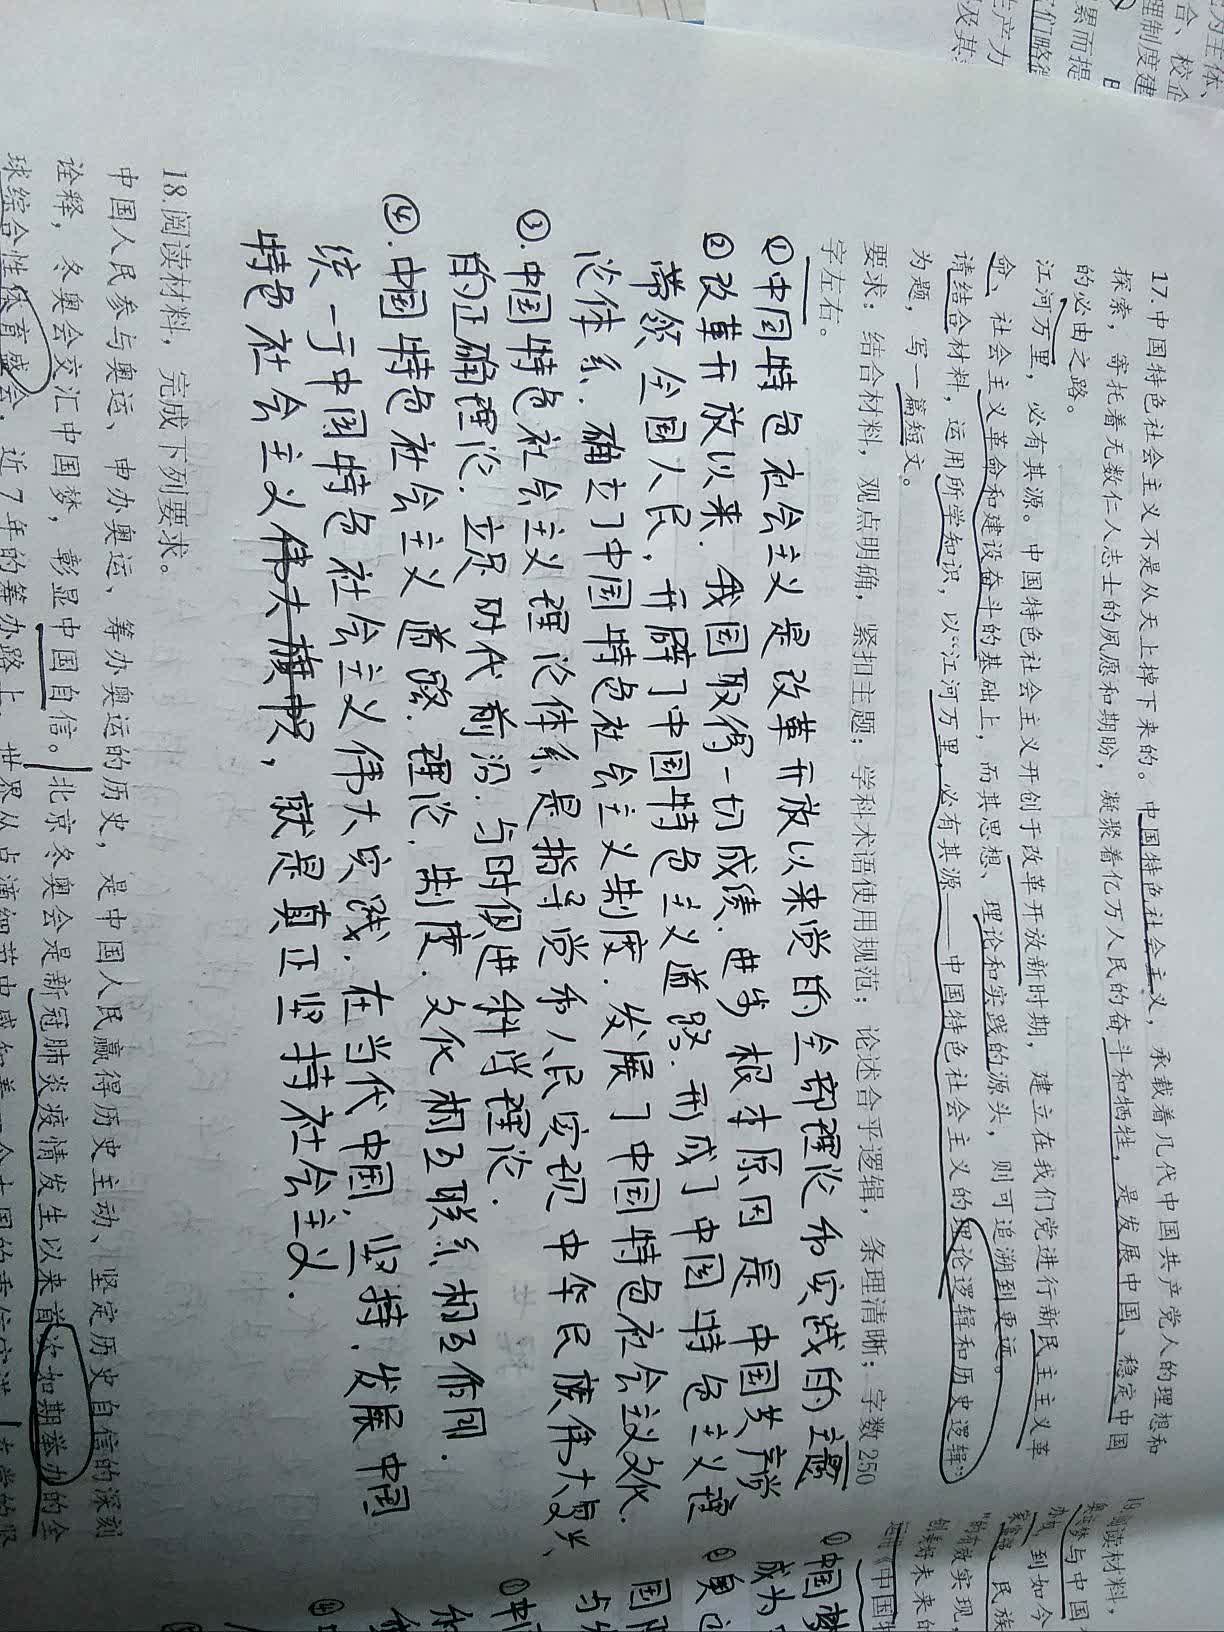 17.中国特色社会主义不是从天上掉下来的。中国特色社会主义，承载着几代中国共产党人的理想和
探索，寄托着无数仁人志士的夙愿和期盼，凝聚着亿万人民的奋斗和牺牲，是发展中国、稳定中国
的必由之路。
江河万里，必有其源。中国特色社会主义开创于改革开放新时期，建立在我们党进行新民主主义革
命、社会主义革命和建设奋斗的基础上，而其思想、理论和实践的源头，则可追溯到更远。
请结合材料，运用所学知识，以“江河万里，必有其源——中国特色社会主义的理论逻辑和历史逻辑”
为题，写一篇短文。
要求：结合材料，观点明确，紧扣主题；学科术语使用规范；论述合乎逻辑，条理清晰；字数250
字左右。
①中国特色社会主义是改革开放以来党的全部理论和实践的主题
②改革开放以来.我国取得一切成绩.进步根本原因是中国共产党
带领全国人民，开辟了中国特色主义道路.形成了中国特色主义理
论体系.确立了中国特色社会主义制度.发展了中国特色社会主义文化.
③.中国特色社会主义理论体系是指导党和人民实现中华民族伟大复兴、
的正确理论.立足时代前沿.与时俱进科学理论.
④.中国特色社会主义道路.理论.制度.文化相互联系相互作用.
统一于中国特色社会主义伟大实践.在当代中国，坚持.发展中国
特色社会主义伟大旗帜，就是真正坚持社会主义.
18.阅读材料，完成下列要求。
中国人民参与奥运、申办奥运、筹办奥运的历史，是中国人民赢得历史主动、坚定历史自信的深刻
诠释，冬奥会交汇中国梦，彰显中国自信。北京冬奥会是新冠肺炎疫情发生以来首次如期举办的全
球综合性体育盛会，近7年的筹办路上，世界从点滴细节中感知着一个大国的
为主体、
合、校企
理制度建
累而提
们略
生产力
及其
阅读材料，
奥运梦与中国
办奥
到如今
民族
的有效实现，
创美好未来的
运用《中国
①中国梦
成为
②奥运
国际
与
①中
④